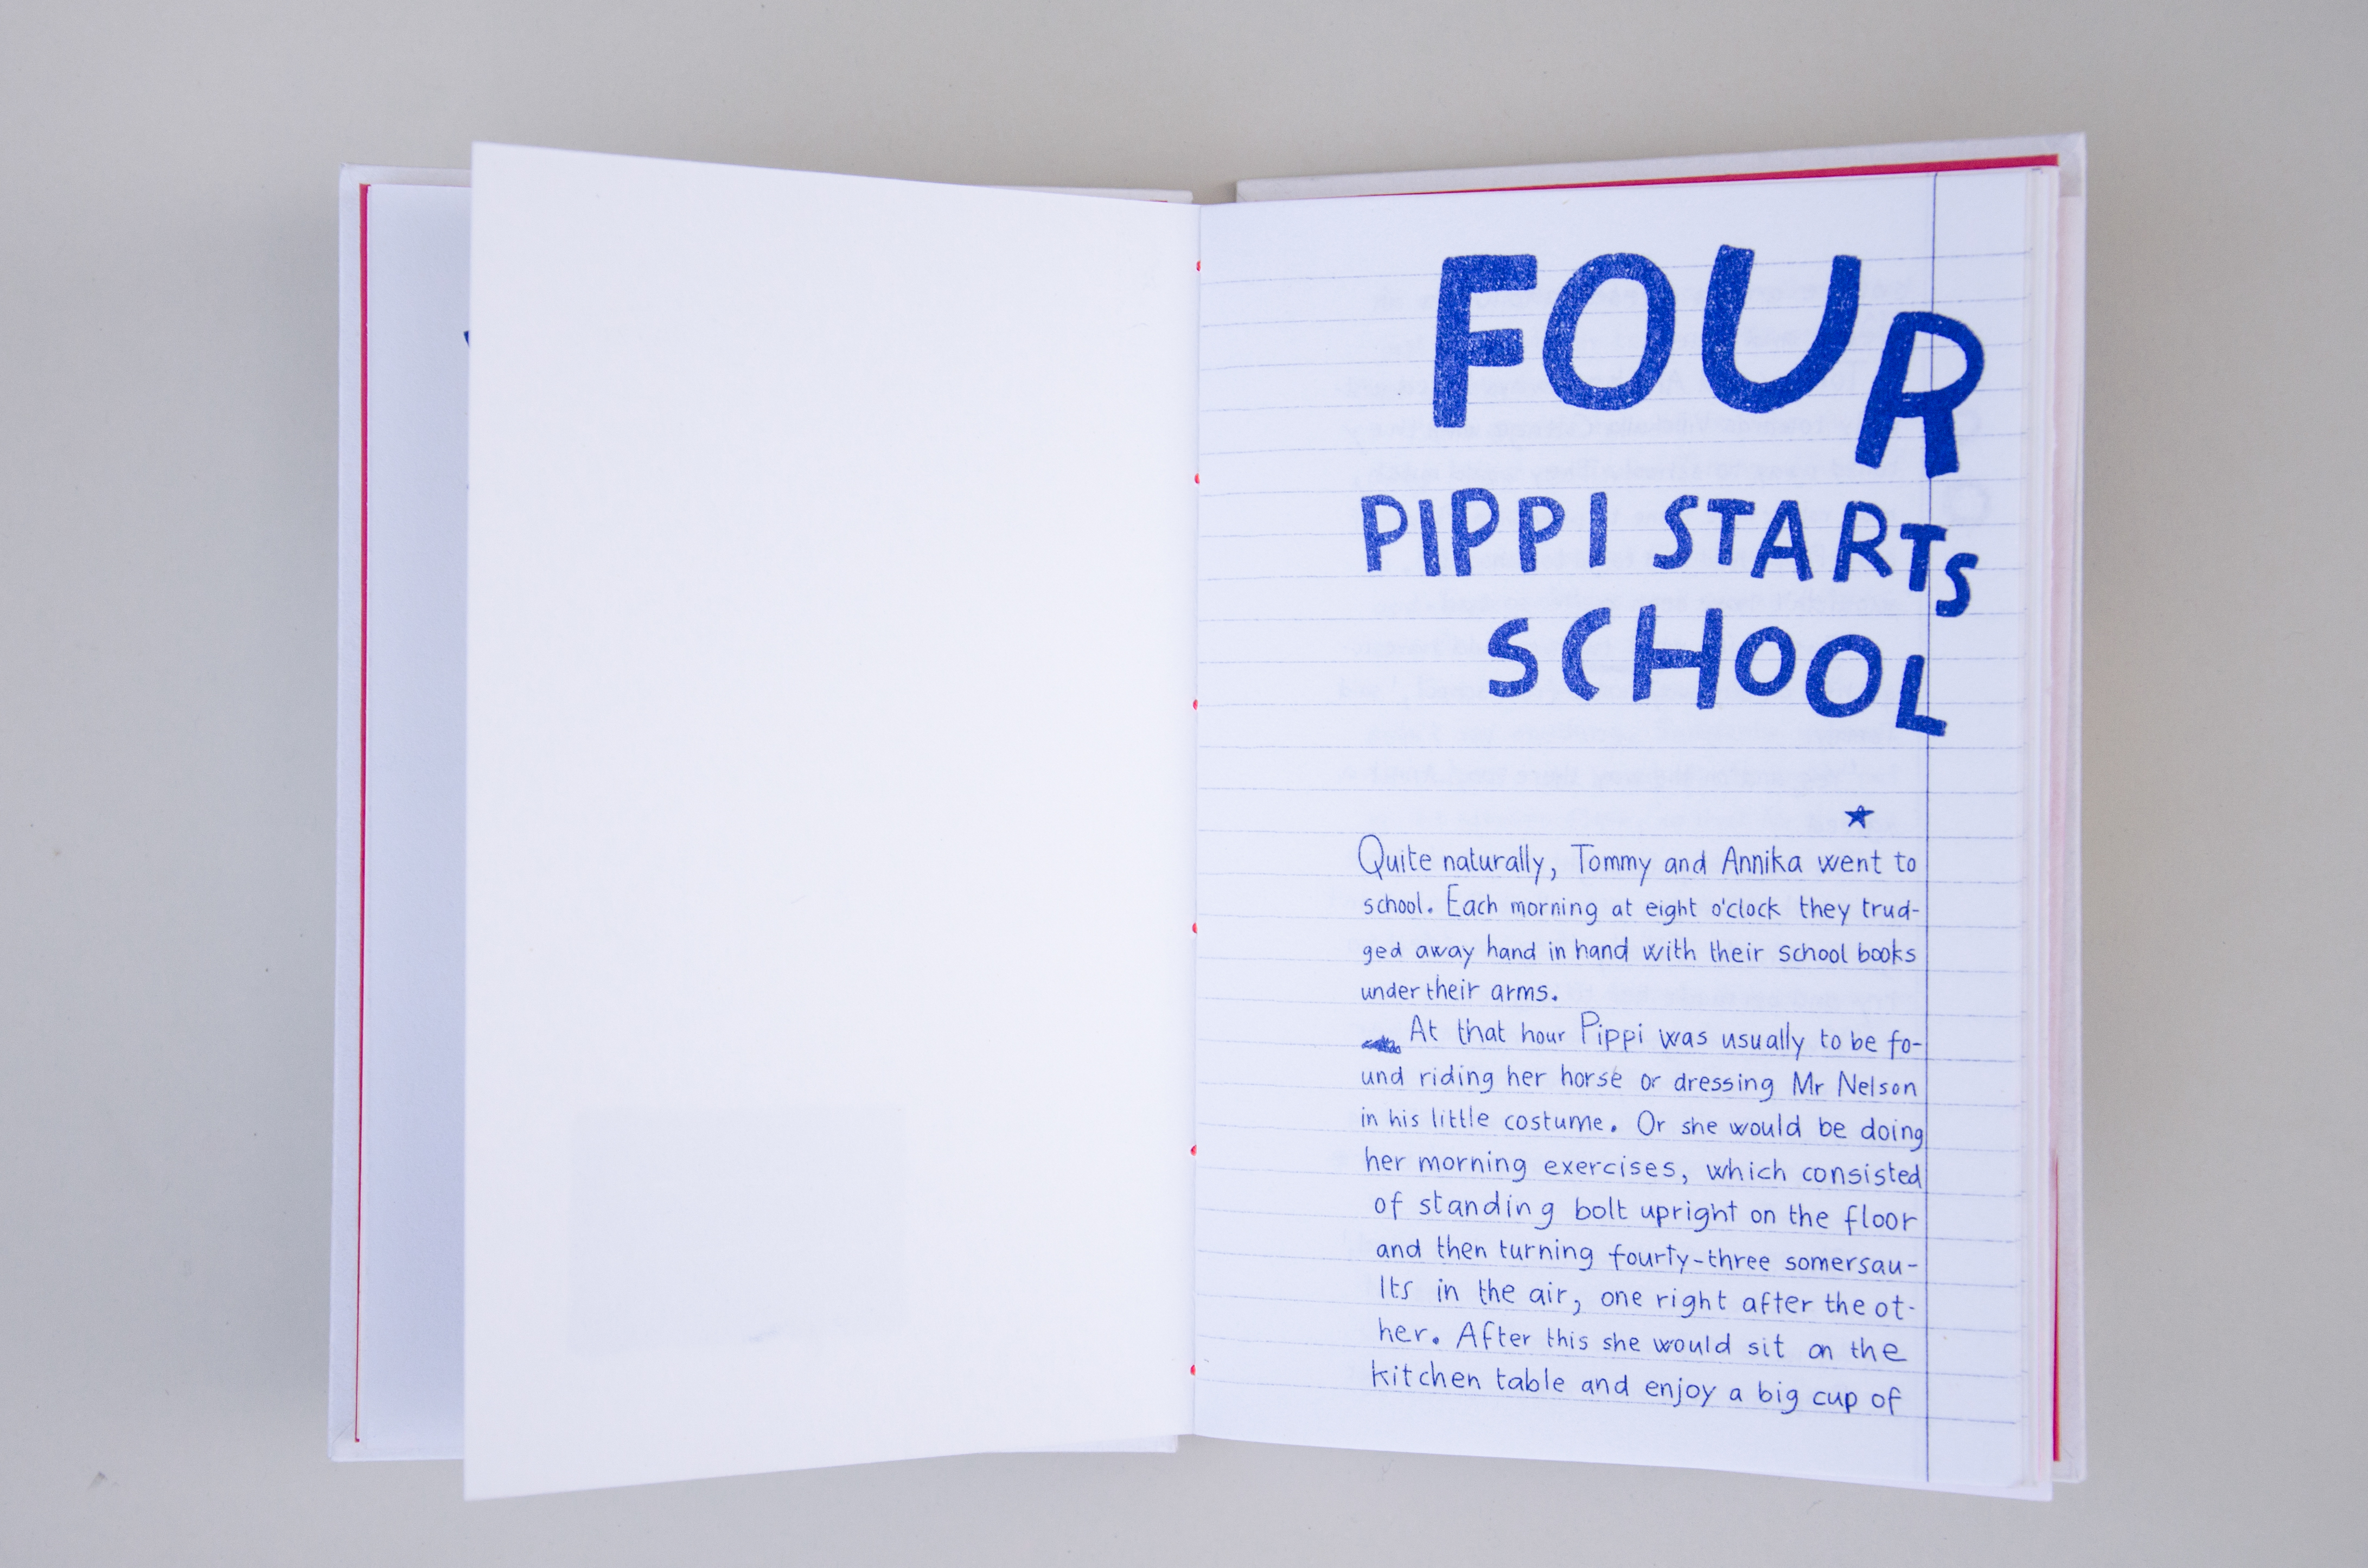 FOUR
PIPPI STARTS
SCHOOL
Quite naturally, Tommy and Annika went to
school. Each morning at eight o'clock they trud-
ged away hand in hand with their school books
under their arms.
At that hour Pippi was usually to be fo-
und riding her horse or dressing Mr Nelson
in his little costume. Or she would be doing
her morning exercises, which consisted
of standing bolt upright on the floor
and then turning fourty-three somersau-
lts in the air, one right after the ot-
her. After this she would sit on the
kitchen table and enjoy a big cup of